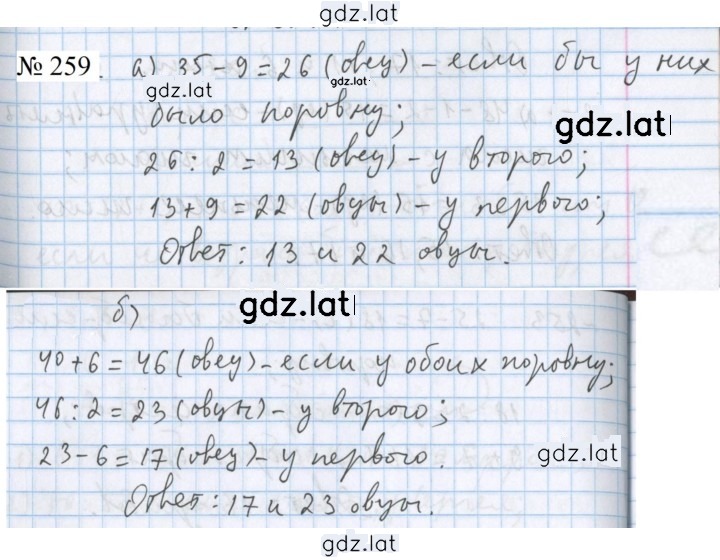 gdz.lat
№ 259. а) 35 - 9 = 26 (овец) - если бы у них
gdz.lat gdz.lat
было поровну;
gdz.lat
26 : 2 = 13 (овец) - у второго;
13 + 9 = 22 (овцы) - у первого;
Ответ: 13 и 22 овцы.
gdz.lat
б)
40 + 6 = 46 (овец) - если у обоих поровну;
46 : 2 = 23 (овцы) - у второго;
23 - 6 = 17 (овец) - у первого.
gdz.lat
Ответ: 17 и 23 овцы.
gdz.lat